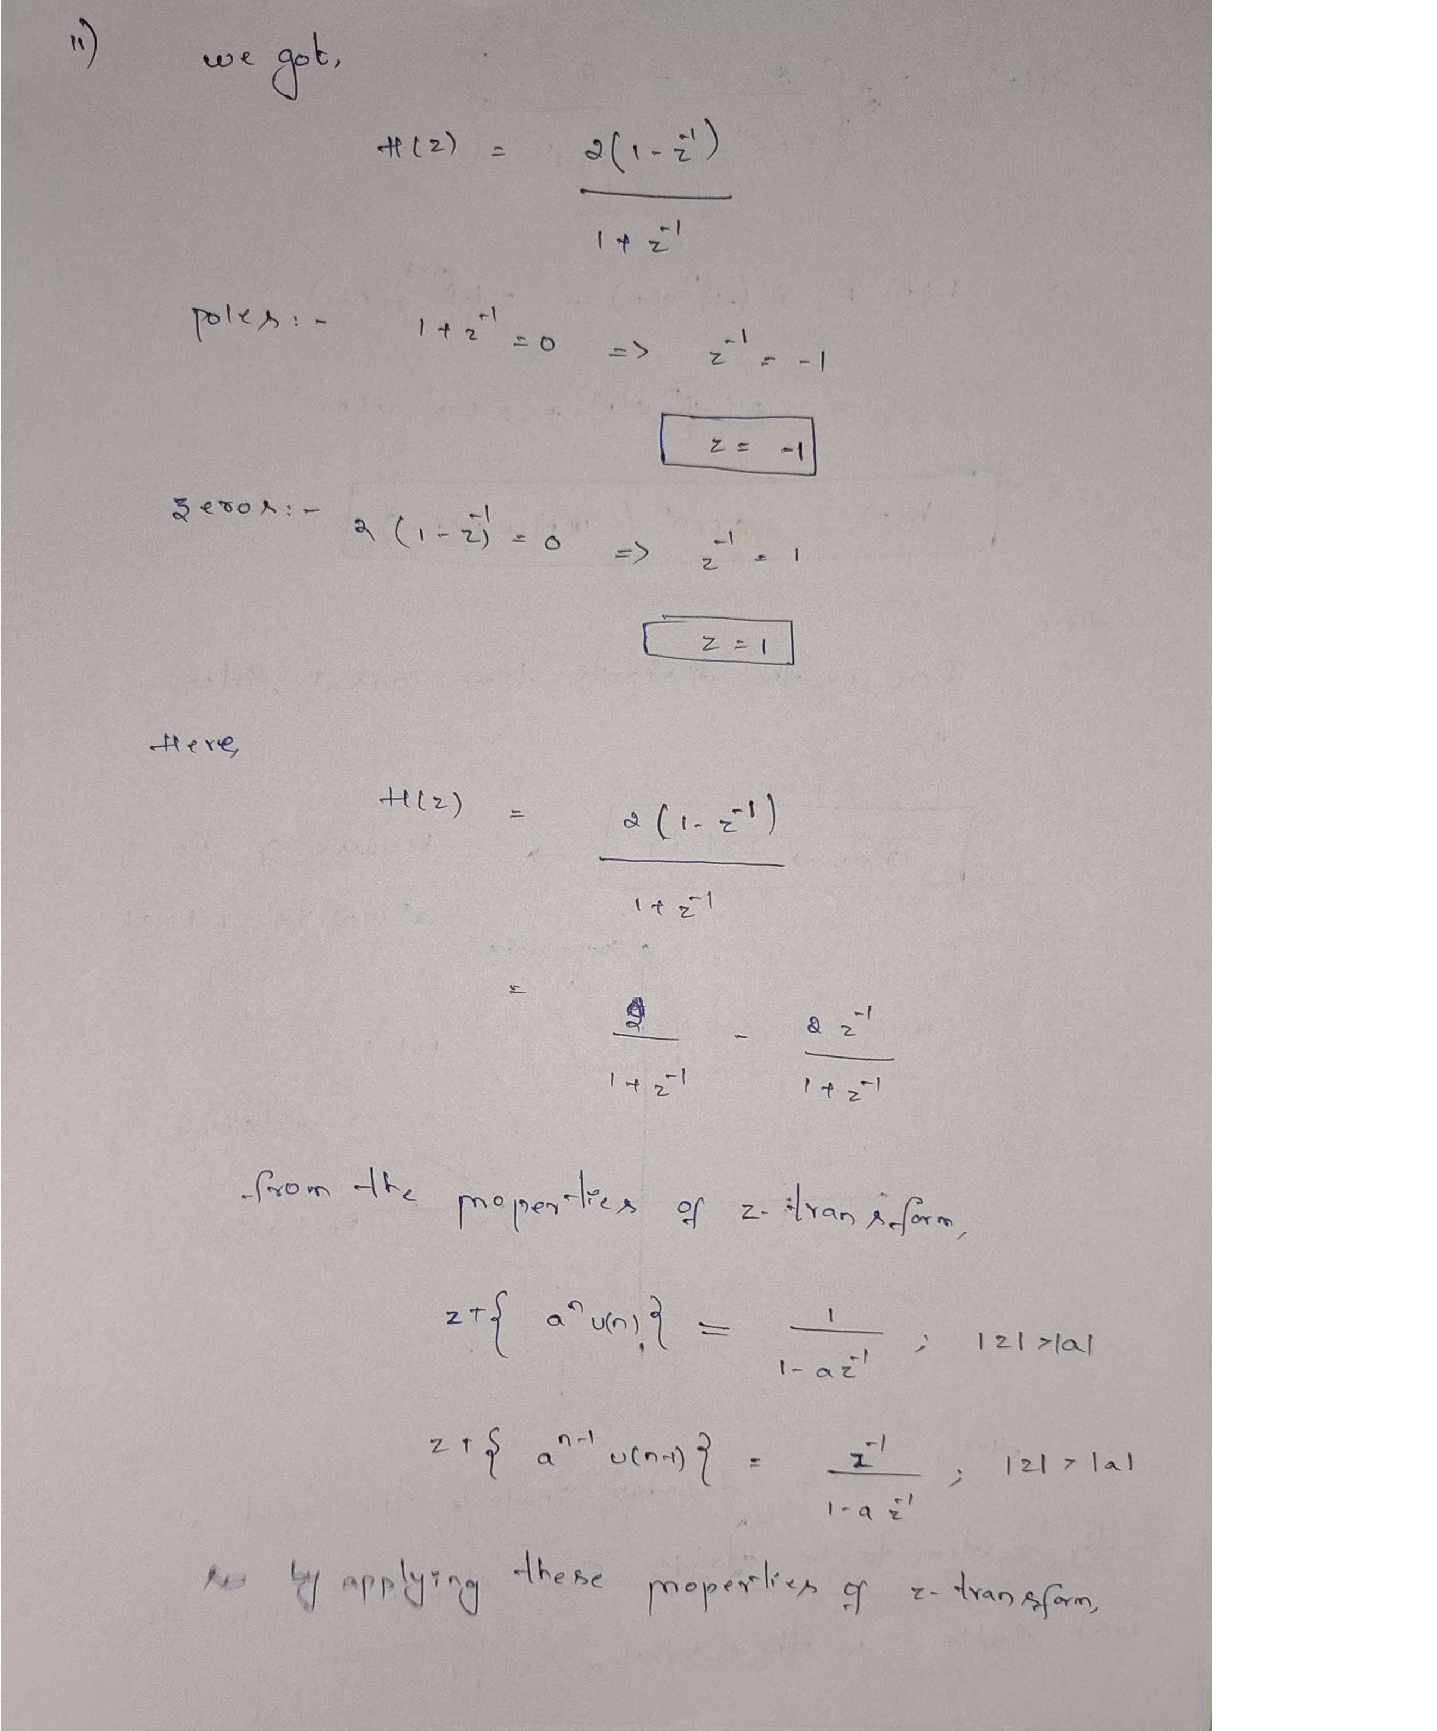 ii) we got,
H(z) = 2(1-z⁻¹)
1+z⁻¹
poles:- 1+z⁻¹ = 0 => z⁻¹ = -1
z = -1
zeros:- 2(1-z⁻¹) = 0 => z⁻¹ = 1
z = 1
Here,
H(z) = 2(1-z⁻¹)
1+z⁻¹
= 2 - 2z⁻¹
1+z⁻¹ 1+z⁻¹
from the properties of z-transform,
ZT{ aⁿ u(n) } = 1 ; |z| > |a|
1-az⁻¹
ZT{ aⁿ⁻¹ u(n-1) } = z⁻¹ ; |z| > |a|
1-az⁻¹
so by applying these properties of z-transform,